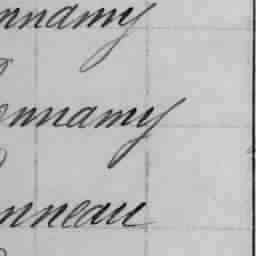 nnamy
onnamy
onneau